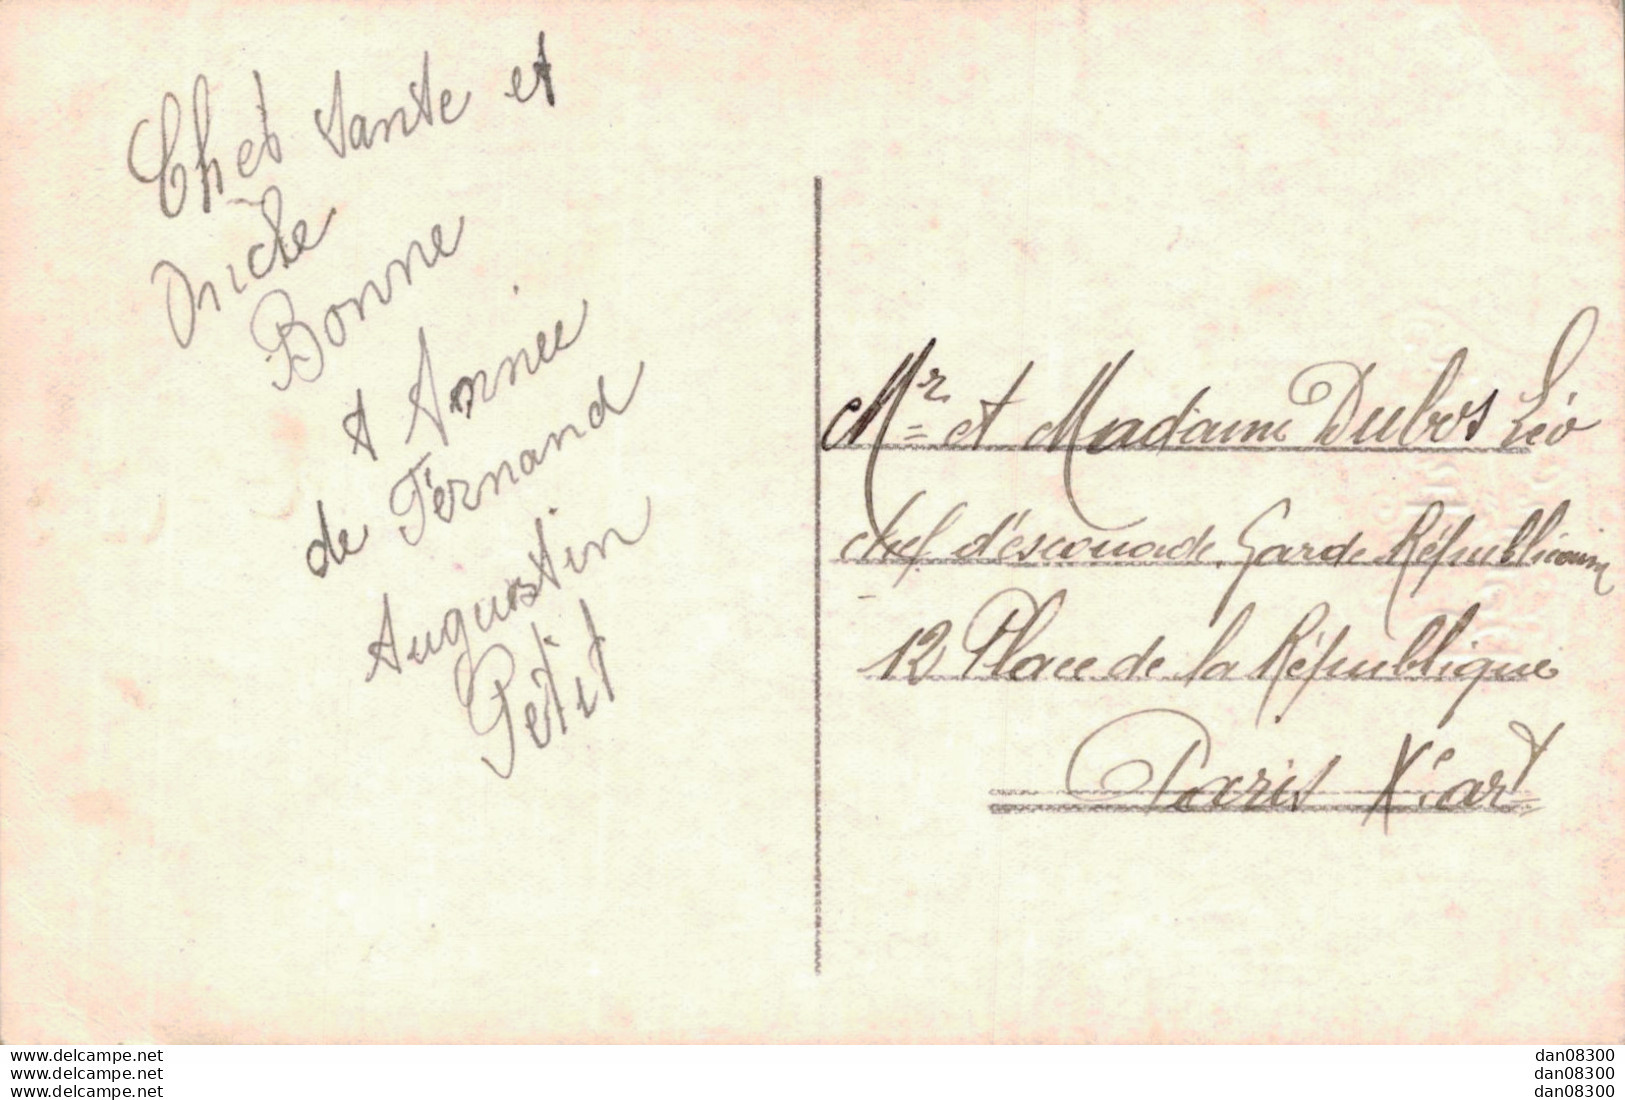 Chèr tante et
oncle
Bonne
t Année
de Fernand
Augustin
Petit
Mr et Madame Dubos Léo
chef d'escouade Garde Républicaine
12 Place de la République
Paris Xe art
www.delcampe.net
www.delcampe.net
www.delcampe.net
dan08300
dan08300
dan08300